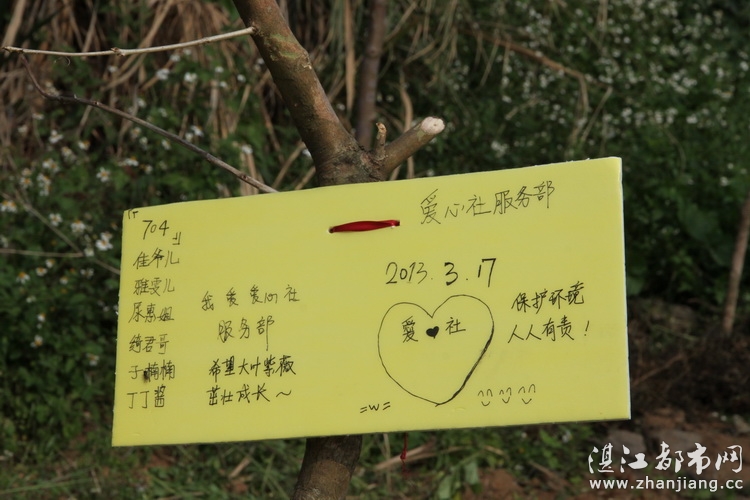 爱心社服务部
「704」
佳爷儿
雅雯儿
尿惠姐
绮君哥
子楠楠
丁丁酱
我爱爱心社
服务部
希望大叶紫薇
茁壮成长～
2013.3.17
爱♥社
保护环境
人人有责!
=w=
湛江都市网
www.zhanjiang.cc